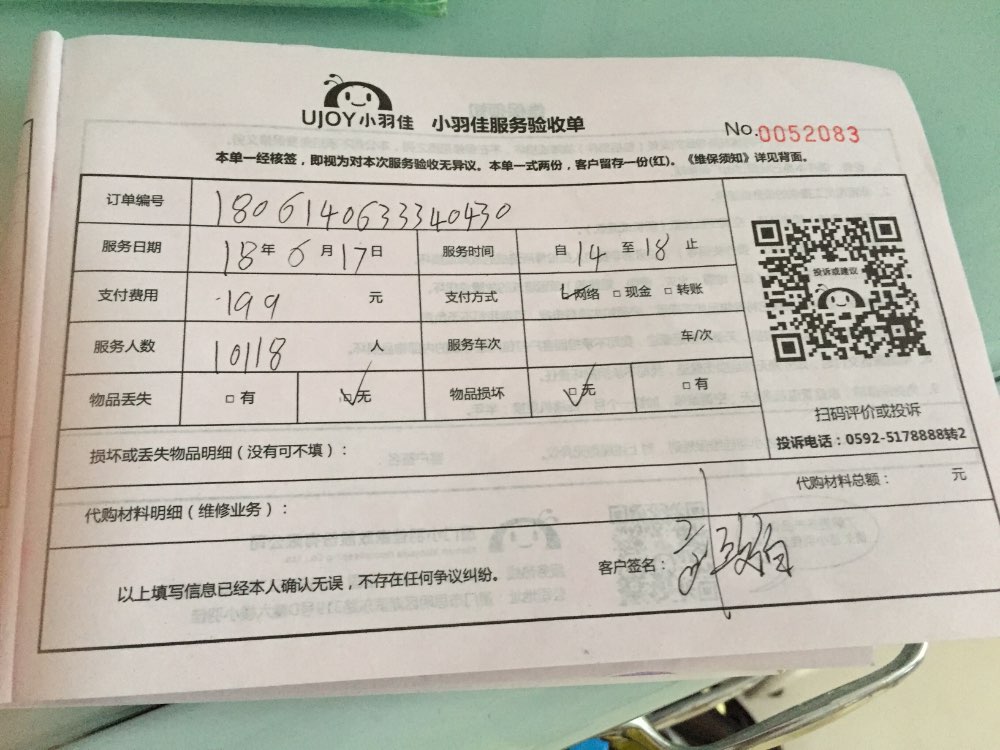 UJOY小羽佳 小羽佳服务验收单 No.0052083
本单一经核签，即视为对本次服务验收无异议。本单一式两份，客户留存一份(红)。《维保须知》详见背面。
订单编号 1806140633340430
服务日期 18年6月17日 服务时间 自14至18止
支付费用 199 元 支付方式 网络 □现金 □转账
服务人数 10118 人 服务车次 车/次
物品丢失 □有 □无 物品损坏 □无 □有
投诉或建议
扫码评价或投诉
投诉电话：0592-5178888转2
损坏或丢失物品明细（没有可不填）：
代购材料明细（维修业务）： 代购材料总额： 元
以上填写信息已经本人确认无误，不存在任何争议纠纷。 客户签名：